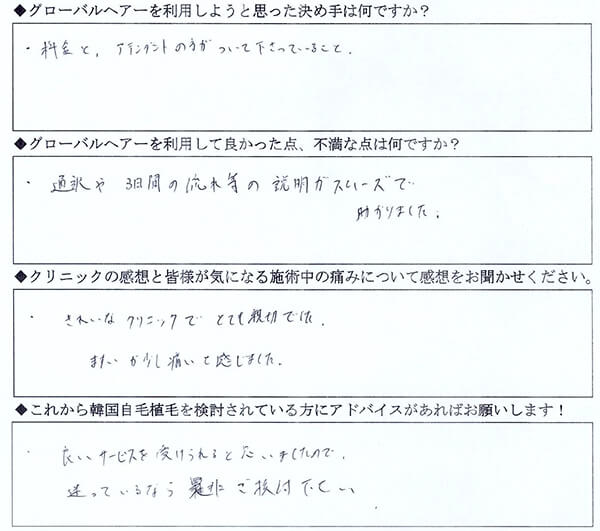 ◆グローバルヘアーを利用しようと思った決め手は何ですか？
・料金と、アテンダントの方がついて下さっていること。
◆グローバルヘアーを利用して良かった点、不満な点は何ですか？
・通訳や3日間の流れ等の説明がスムーズで
助かりました。
◆クリニックの感想と皆様が気になる施術中の痛みについて感想をお聞かせください。
・きれいなクリニックでとても親切でした。
ますいが少し痛いと感じました。
◆これから韓国自毛植毛を検討されている方にアドバイスがあればお願いします！
・良いサービスを受けられると思いましたので、
迷っているなら是非ご検討下さい。